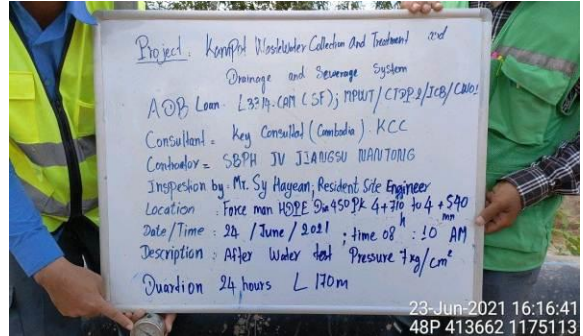 Project. Kampot WasteWater Collection And Treatment and
Drainage and Sewerage System
ADB Loan. L3314.CAM (SF); MPWT/CTDP.2/ICB/CW01
Consultant = Key Consultat (Cambodia). KCC
Contractor = SBPH JV JIANGSU NANTONG
Inspection by: Mr. Sy Hayean; Resident Site Engineer
Location : Force man HDPE Dia 450 Pk 4+710 to 4+540
Date/Time : 24 / June / 2021 ; time 08 h : 10 mn AM
Description : After Water test Pressure 7kg/cm²
Duartion 24 hours L 170m
23-Jun-2021 16:16:41
48P 413662 1175113